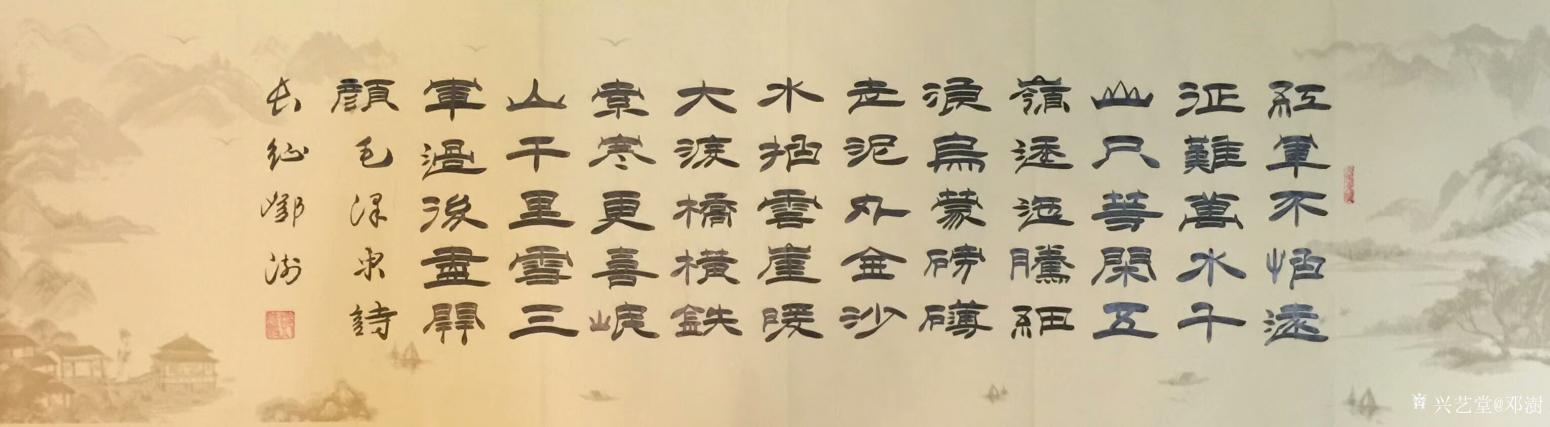 紅軍不怕遠
征難萬水千
山只等閑五
嶺逶迤騰細
浪烏蒙磅礴
走泥丸金沙
水拍雲崖暖
大渡橋橫鉄
索寒更喜岷
山千里雪三
軍過後盡開
顏毛泽东詩
长征鄧澍
兴艺堂@邓澍